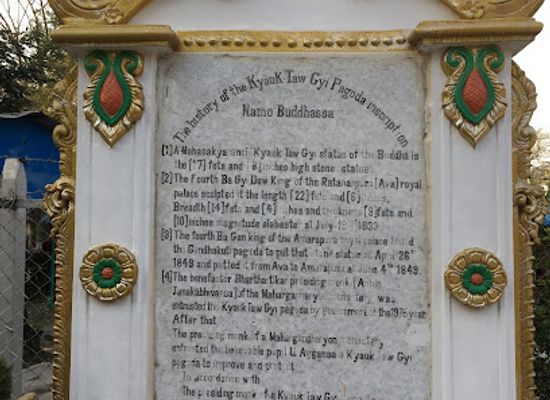 The history of the Kyauk Taw Gyi Pagoda inscription
Namo Buddhassa
[1] A Mahasakya Kyauk Taw Gyi status of the Buddha is
the [17] fets and inches high stone statue.
[2] The fourth Ba Gyi Daw King of the Ratanapura [Ava] royal
palace sculpted it the length [22] fets and [6]
Breadth [14] fets and [4] inches and thickness [9] fets and
[10] inches magnitude alabaster at July
[3] The fourth Ba Gan king of the Amarapura royal palace
the Gandhakuti pagoda to put that statue on April 26th
1849 and putted it from Ava to Amarapura at June 4th 1849.
[4] The benefactor presiding
Janakabhivansa of the Mahagandharyon was
entrusted the Kyauk Taw Gyi pagoda by government at the 1975 year
After that
The presiding monk of a Mahagandharyon monastery
entrusted the believable pupil U. Kyauk Taw Gyi
pagoda to improve and protect
In accordance with
The presiding monk of a Kyauk Taw Gyi